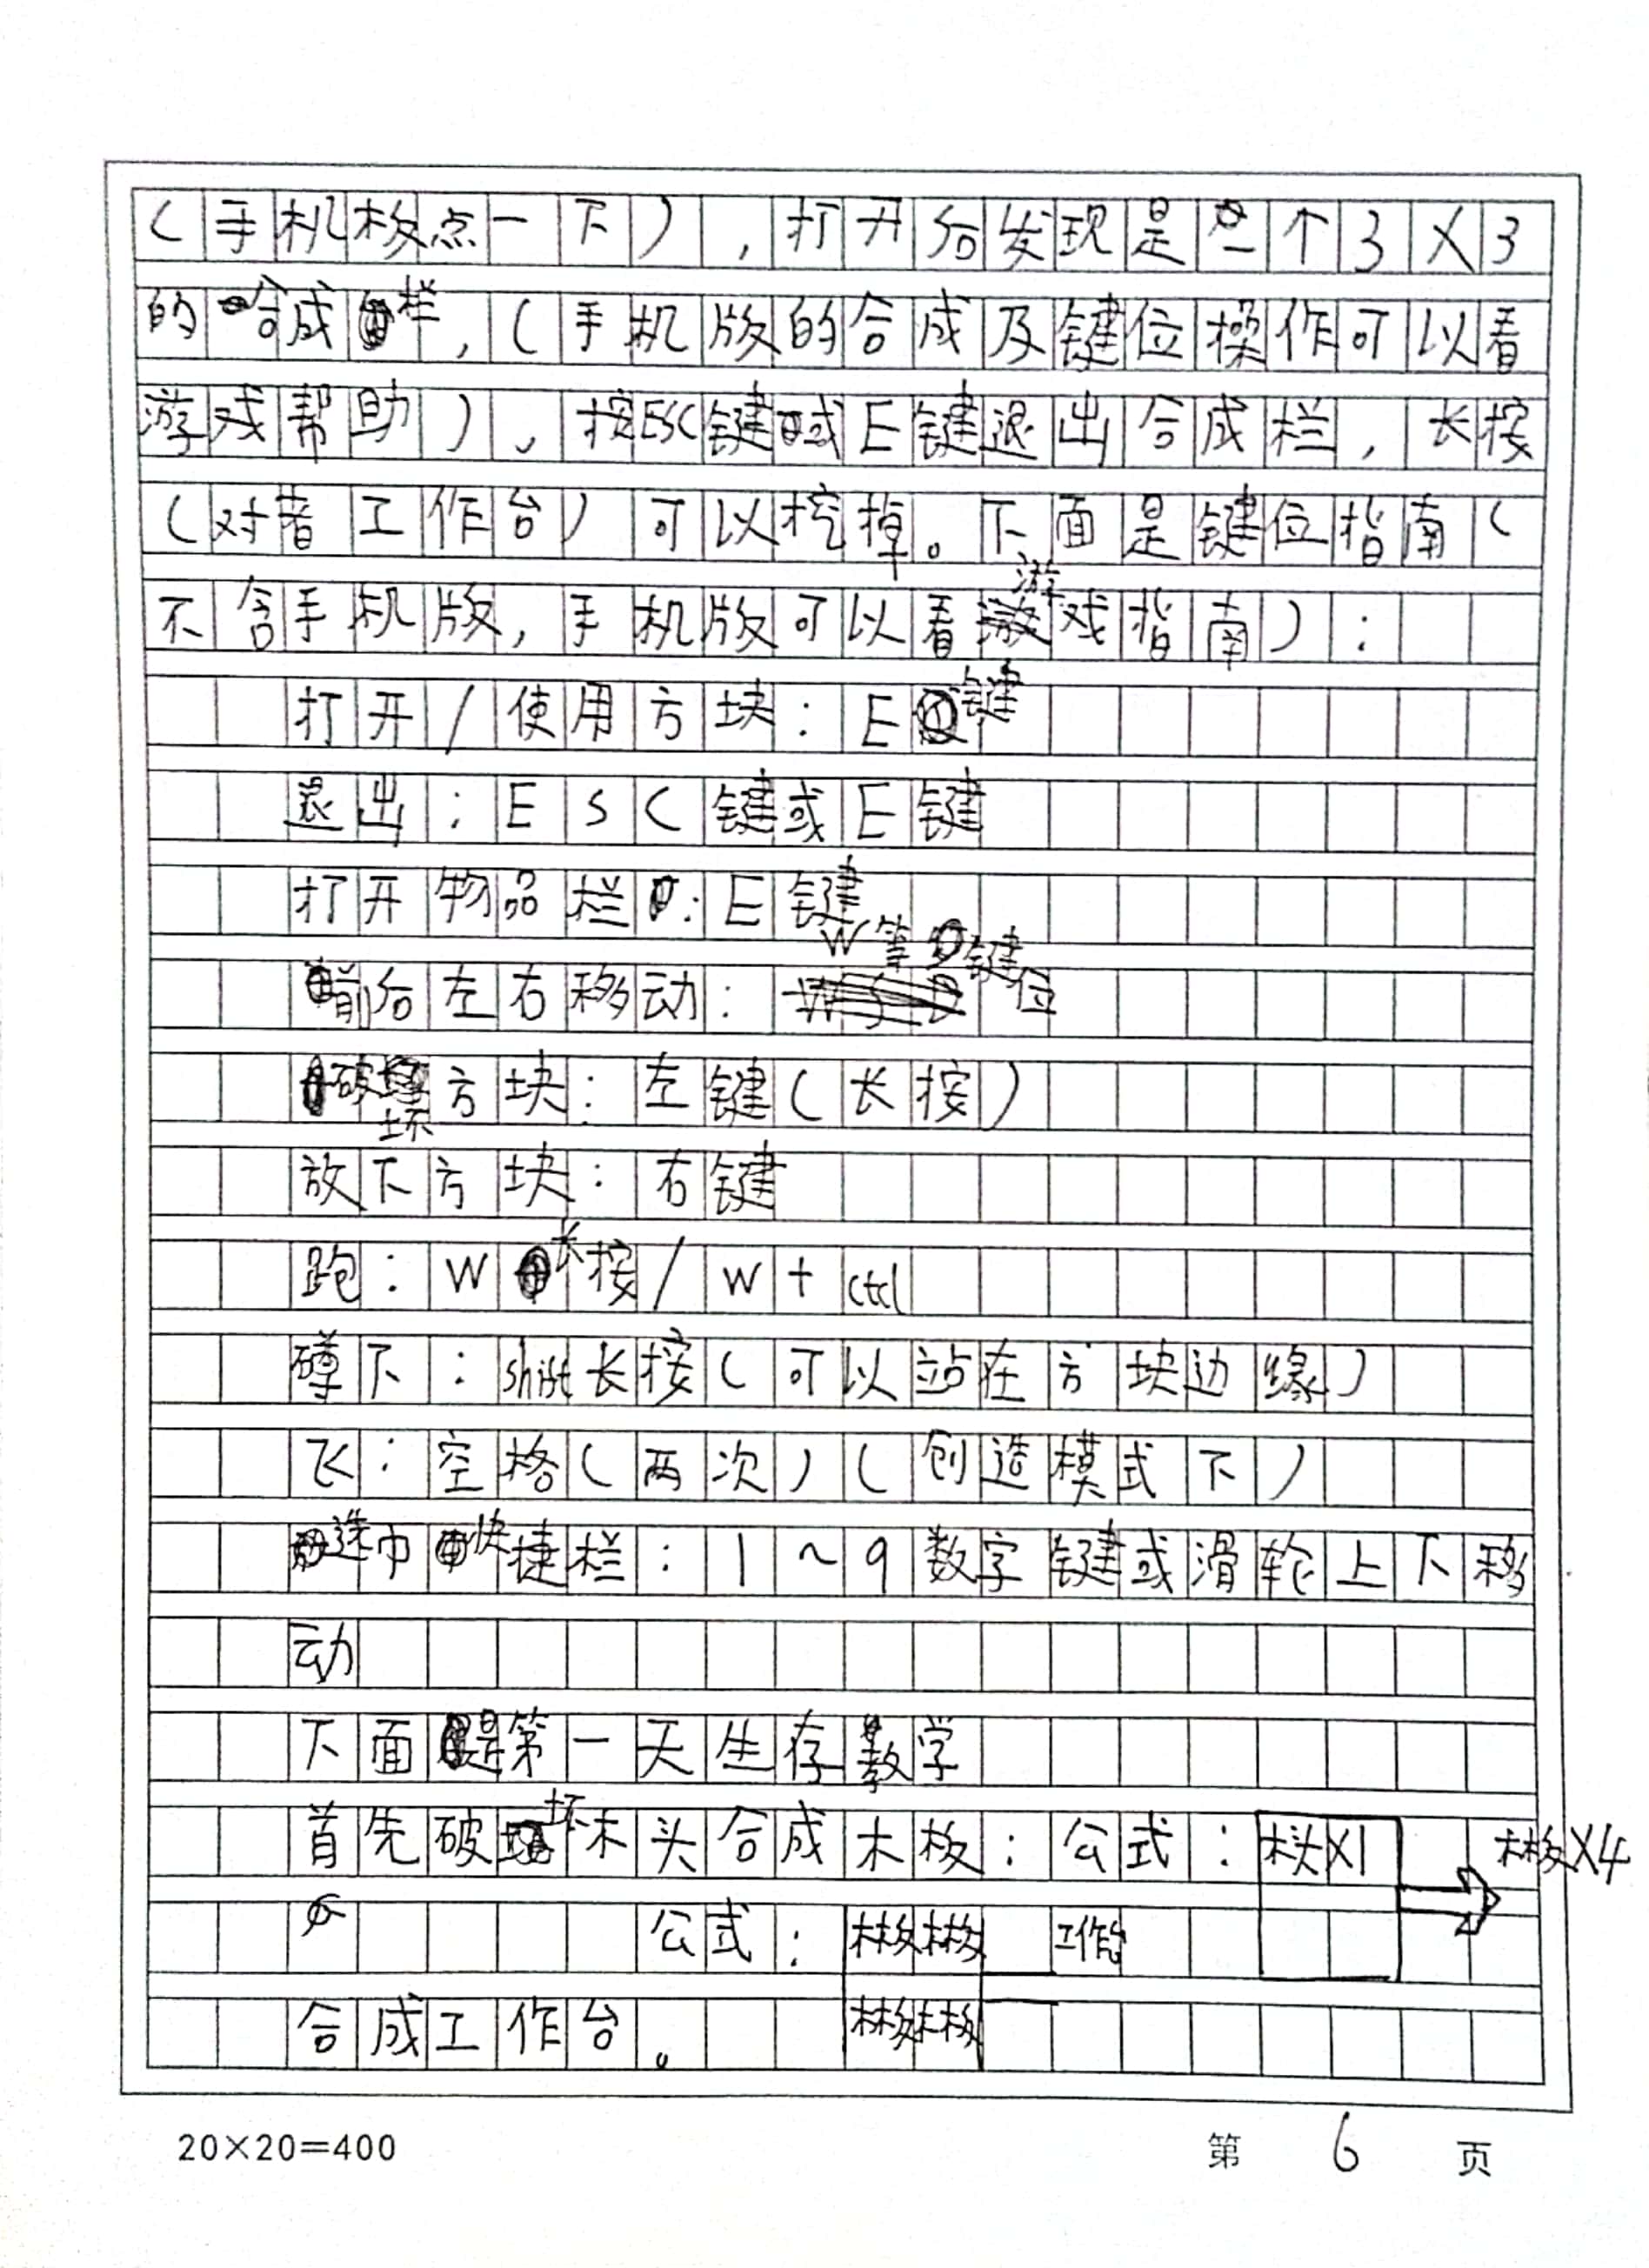 （手机板点一下），打开后发现是一个3X3
的合成栏，（手机版的合成及键位操作可以看
游戏帮助），按ESC键或E键退出合成栏，长按
（对着工作台）可以挖掉。下面是键位指南（
不含手机版，手机版可以看游戏指南）：
打开/使用方块：E键
退出：ESC键或E键
打开物品栏：E键
前后左右移动：W等键位
破坏方块：左键（长按）
放下方块：右键
跑：W长按/W+ctrl
蹲下：shift长按（可以站在方块边缘）
飞：空格（两次）（创造模式下）
选中快捷栏：1~9数字键或滑轮上下移
动
下面是第一天生存教学
首先破坏木头合成木板：公式：木头X1 木板X4
公式：木板木板 工作台
合成工作台。 木板木板
20×20=400 第 6 页